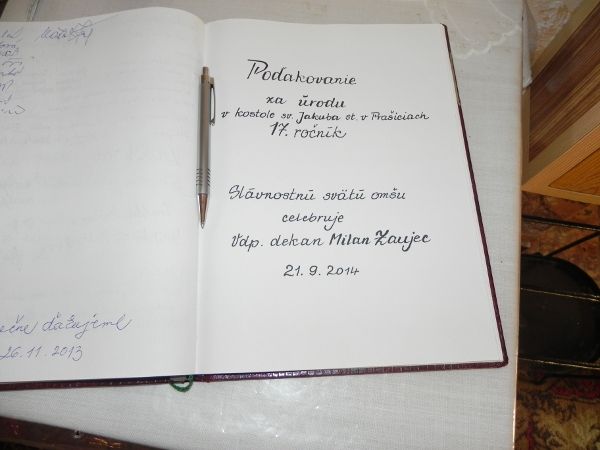 ďakujeme
26.11.2013
Poďakovanie
za úrodu
v kostole sv. Jakuba st. v Prašiciach
17. ročník
Slávnostnú svätú omšu
celebruje
Vdp. dekan Milan Zaujec
21. 9. 2014